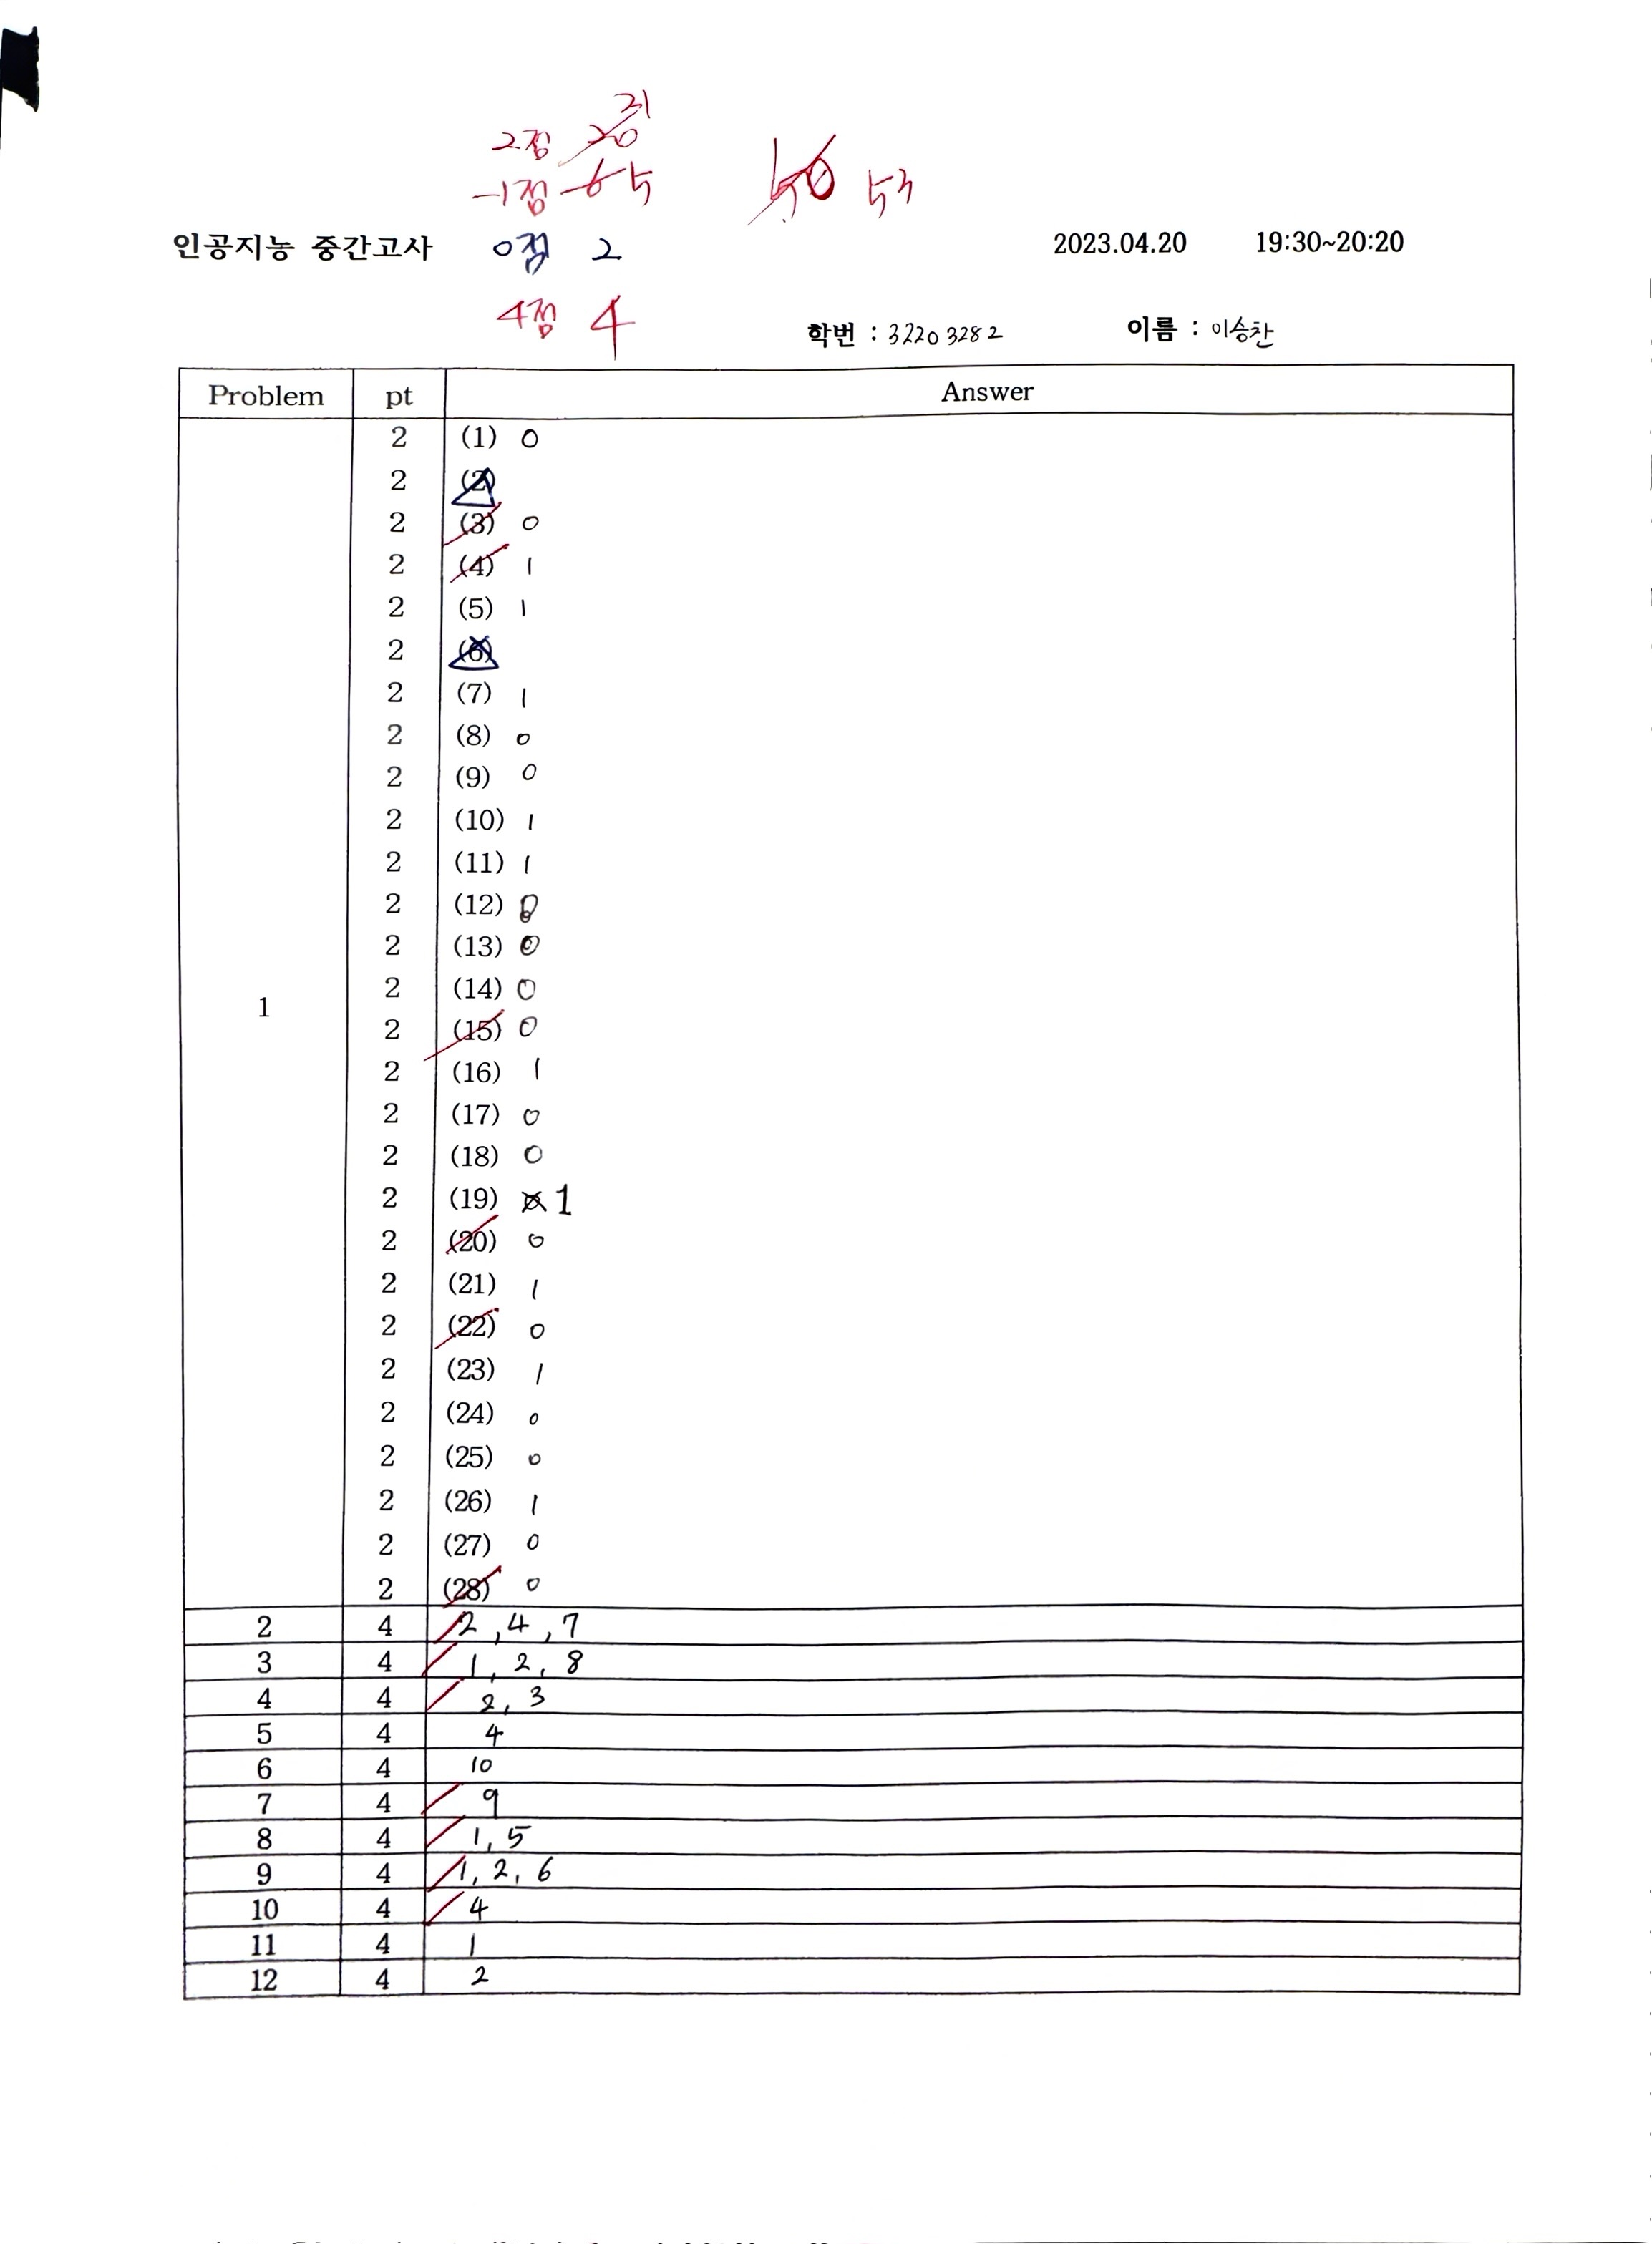 2점 20 21
-1점 6 5 50 53
인공지능 중간고사 0점 2 2023.04.20 19:30~20:20
4점 4
학번 : 32203282 이름 : 이승찬
Problem pt Answer
2 (1) 0
2 (2)
2 (3) 0
2 (4) 1
2 (5) 1
2 (6)
2 (7) 1
2 (8) 0
2 (9) 0
2 (10) 1
2 (11) 1
2 (12) 0
2 (13) 0
2 (14) 0
1
2 (15) 0
2 (16) 1
2 (17) 0
2 (18) 0
2 (19) 1
2 (20) 0
2 (21) 1
2 (22) 0
2 (23) 1
2 (24) 0
2 (25) 0
2 (26) 1
2 (27) 0
2 (28) 0
2 4 2, 4, 7
3 4 1, 2, 8
4 4 2, 3
5 4 4
6 4 10
7 4 9
8 4 1, 5
9 4 1, 2, 6
10 4 4
11 4 1
12 4 2